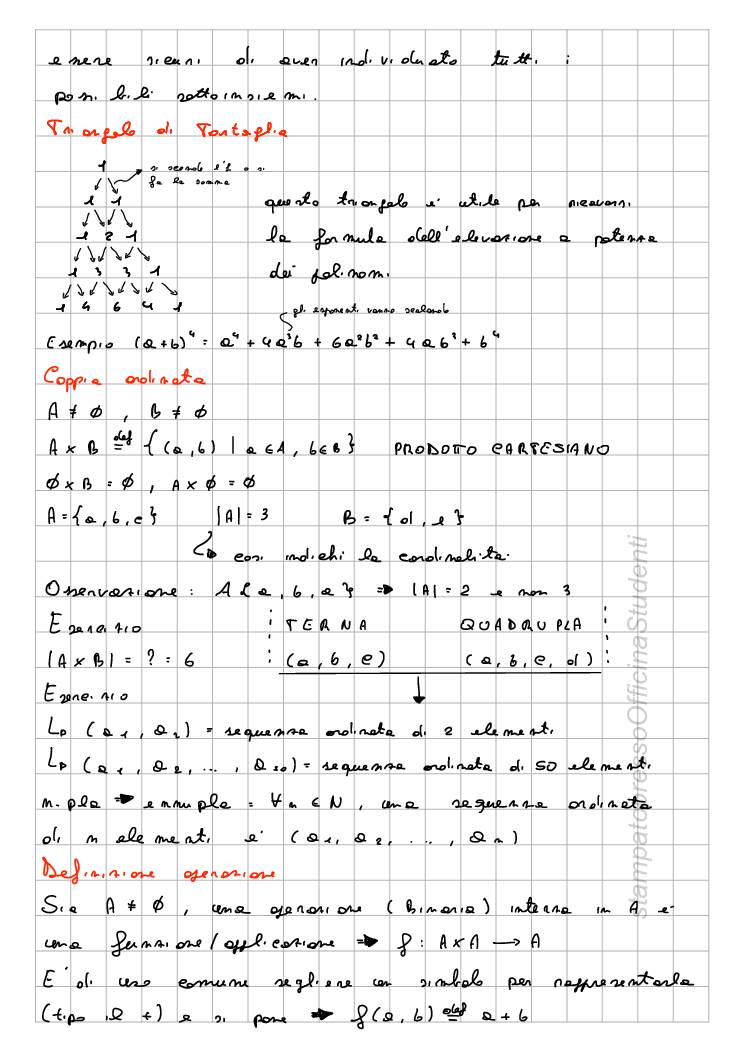 essere sicuri di aver individuato tutti i
possibili sottoinsiemi.
Triangolo di Tartaglia
1
si scende l'1 o si
fa la somma
1 1
1 2 1
1 3 3 1
1 4 6 4 1
questo triangolo e' utile per ricavarsi
la formula dell'elevazione a potenza
dei polinomi
gli esponenti vanno scalando
Esempio (a+b)⁴ = a⁴ + 4a³b + 6a²b² + 4ab³ + b⁴
Coppia ordinata
A ≠ ∅ , B ≠ ∅
A × B ≝ {(a,b) | a ∈ A, b ∈ B} PRODOTTO CARTESIANO
∅ × B = ∅ , A × ∅ = ∅
A = {a, b, c} |A| = 3 B = {d, e}
↳ così indichi la cardinalità.
Osservazione: A{a, b, a} ⇒ |A| = 2 e non 3
Esercizio TERNA QUADRUPLA
|A × B| = ? = 6 (a, b, c) (a, b, c, d)
Esercizio ↓
↳ (a₁, a₂) = sequenza ordinata di 2 elementi
↳ (a₁, a₂, ..., a₅₀) = sequenza ordinata di 50 elementi
n.pla ⇒ ennupla = ∀n ∈ N, una sequenza ordinata
di n elementi e' (a₁, a₂, ..., aₙ)
Definizione operazione
Sia A ≠ ∅, una operazione (Binaria) interna in A e'
una funzione/applicazione ⇒ f: A×A → A
E' di uso comune scegliere un simbolo per rappresentarla
(tipo il +) e si pone ⇒ f(a,b) ≝ a+b
stampatopressoOfficinaStudenti